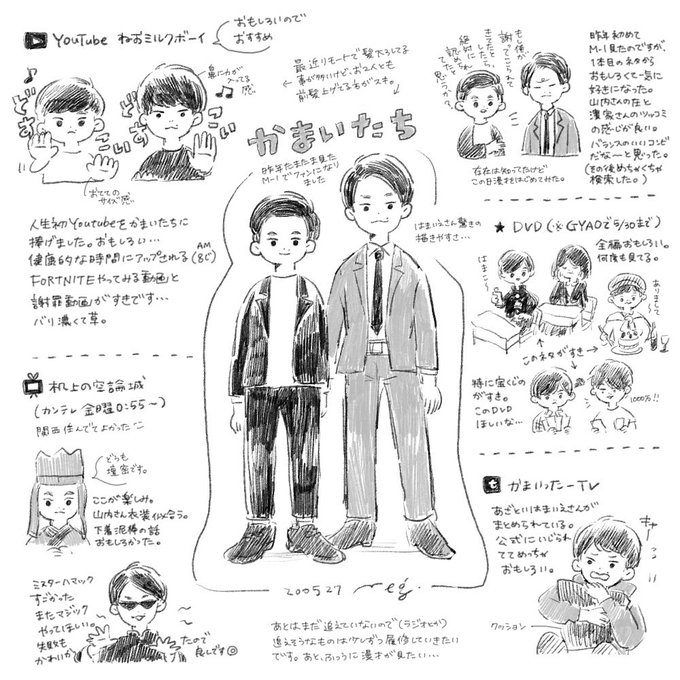 YouTube ねおミルクボーイ
おもしろいので
おすすめ
鼻に力が
入ってる
感
どすこい
どすこい
おててのサイズ感
人生初YouTubeをかまいたちに
捧げました。おもしろい…
健康的な時間にアップされる(AM8じ)
FORTNITEやってみる動画と
謝罪動画がすきです…
バリ濃くて草。
机上の空論城
(カンテレ 金曜0:55〜)
関西住んでてよかった
どうも
壇蜜です。
ここが楽しみ。
山内さん衣装似合う。
下着泥棒の話
おもしろかった。
ミスターハマック
すごかった
またマジック
やってほしい。
失敗も
かわいい
ので
良しです
最近リモートで髪下ろしてる
事が多いけど、お2人とも
前髪上げてる方がスキ。
かまいたち
昨年たまたま見た
M-1でファンになり
ました
はまいえさん驚きの
描きやすさ…
200527
meg.
あとはまだ追えていないので(ラジオとか)
追えそうなものは少しずつ履修していきたい
です。あと、ふつうに漫才が見たい…
もし俺が
謝ってこられて
きてたとしたら
絶対に
認められてたと
思うか?
昨年初めて
M-1見たのですが、
1本目のネタから
おもしろくて一気に
好きになった。
山内さんの在と
濱家さんのツッコミ
の感じが良い。
バランスのいいコンビ
だなーと思った。
(その後めちゃくちゃ
検索した。)
存在は知ってたけど
この日漫才をはじめてみた。
★ DVD (※GYAOで5/30まで)
全編おもしろい。
何度も見てる。
はまこ〜
ありまして〜
このネタがすき
特に宝くじの
がすき。
このDVD
ほしいな…
1000%!!
かまいったーTV
あざといはまいえさんが
まとめられている。
公式にいじられ
ててめっちゃ
おもしろい。
キャー
クッション